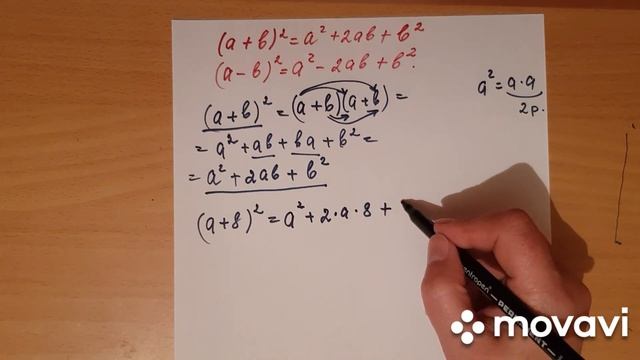 (a+b)² = a² + 2ab + b²
(a-b)² = a² - 2ab + b².
(a+b)² = (a+b)(a+b) =
= a² + ab + ba + b² =
= a² + 2ab + b²
(a+8)² = a² + 2·a·8 +
a² = a·a
2р.
PERMANENT
movavi